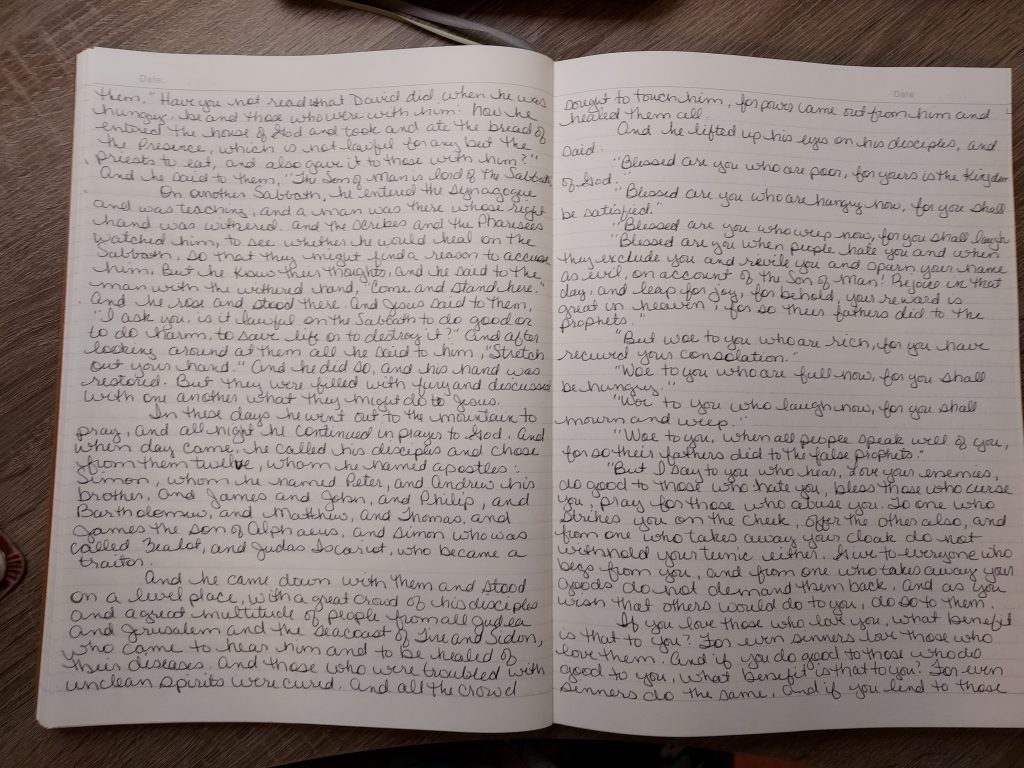 Date:
them, "Have you not read what David did when he was
hungry, he and those who were with him: how he
entered the house of God and took and ate the bread of
the Presence, which is not lawful for any but the
priests to eat, and also gave it to those with him?"
And he said to them, "The Son of Man is lord of the Sabbath.
On another Sabbath, he entered the synagogue
and was teaching, and a man was there whose right
hand was withered. And the scribes and the Pharisees
watched him, to see whether he would heal on the
Sabbath, so that they might find a reason to accuse
him. But he knew their thoughts, and he said to the
man with the withered hand, "Come and stand here."
And he rose and stood there. And Jesus said to them,
"I ask you, is it lawful on the Sabbath to do good or
to do harm, to save life or to destroy it?" And after
looking around at them all he said to him, "Stretch
out your hand." And he did so, and his hand was
restored. But they were filled with fury and discussed
with one another what they might do to Jesus.
In these days he went out to the mountain to
pray, and all night he continued in prayer to God. And
when day came, he called his disciples and chose
from them twelve, whom he named apostles:
Simon, whom he named Peter, and Andrew his
brother, and James and John, and Philip, and
Bartholomew, and Matthew, and Thomas, and
James the son of Alphaeus, and Simon who was
called Zealot, and Judas Iscariot, who became a
traitor.
And he came down with them and stood
on a level place, with a great crowd of his disciples
and a great multitude of people from all Judea
and Jerusalem and the seacoast of Tire and Sidon,
who came to hear him and to be healed of
their diseases. And those who were troubled with
unclean spirits were cured. And all the crowd
Date:
sought to touch him, for power came out from him and
healed them all.
And he lifted up his eyes on his disciples, and
said:
"Blessed are you who are poor, for yours is the kingdom
of God."
"Blessed are you who are hungry now, for you shall
be satisfied."
"Blessed are you who weep now, for you shall laugh
"Blessed are you when people hate you and when
they exclude you and revile you and spurn your name
as evil, on account of the Son of Man! Rejoice in that
day, and leap for joy, for behold, your reward is
great in heaven; for so their fathers did to the
prophets."
"But woe to you who are rich, for you have
received your consolation."
"Woe to you who are full now, for you shall
be hungry."
"Woe to you who laugh now, for you shall
mourn and weep."
"Woe to you, when all people speak well of you,
for so their fathers did to the false prophets."
"But I say to you who hear, Love your enemies,
do good to those who hate you, bless those who curse
you, pray for those who abuse you. To one who
strikes you on the cheek, offer the other also, and
from one who takes away your cloak do not
withhold your tunic either. Give to everyone who
begs from you, and from one who takes away your
goods do not demand them back. And as you
wish that others would do to you, do so to them.
If you love those who love you, what benefit
is that to you? For even sinners love those who
love them. And if you do good to those who do
good to you, what benefit is that to you? For even
sinners do the same. And if you lend to those